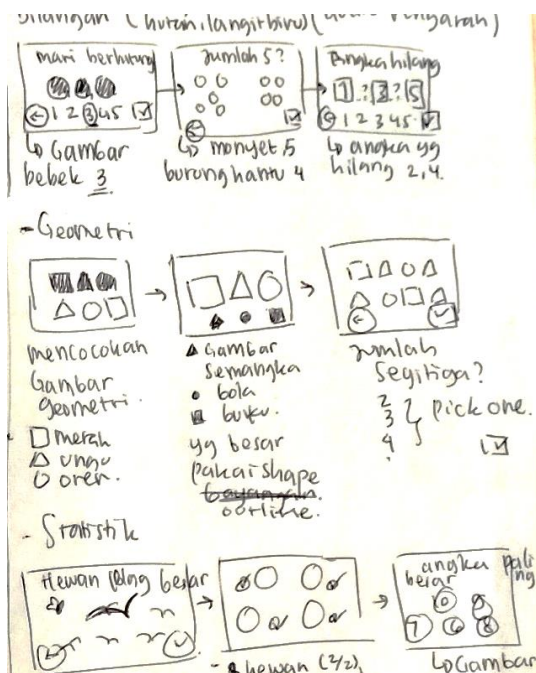 Bilangan (hutan, langit biru) (
mari berhitung
1 2 3 4 5
↳ Gambar
bebek 3
Jumlah 5?
↳ monyet 5
burung hantu 4
Angka hilang
1 ? 3 ? 5
1 2 3 4 5
↳ angka yg
hilang 2, 4.
- Geometri
mencocokan
Gambar
geometri.
merah
ungu
oren.
Gambar
Semangka
bola
buku.
yg besar
pakai shape
outline.
Jumlah
Segitiga?
2
3
4
pick one.
- Statistik
Hewan besar
- hewan (2/2),
angka paling
besar
7 6 8
↳ Gambar